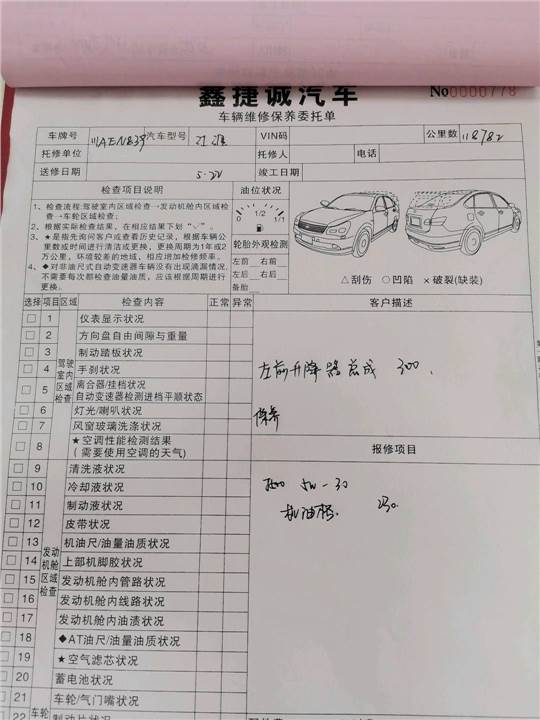 鑫捷诚汽车
No0000778
车辆维修保养委托单
车牌号 汽车型号 VIN码 公里数 118782
托修单位 托修人 电话
送修日期 5.22 竣工日期
检查项目说明
1、检查流程:驾驶室内区域检查→发动机舱内区域检查→车轮区域检查;
2、根据实际检查结果,在相应结果下划“√”。
3、★是指先询问客户或查看历史记录,根据车辆公里数或时间进行清洁或更换,更换周期为1年或2万公里,环境较差的地域,相应增加检修频率。
4、◆对非油尺式自动变速器车辆没有出现滴漏情况,不需要每次都检查油量油质,应该根据周期进行更换。
油位状态
0 1/2 1/1
轮胎外观检测
左前 右前
左后 右后
备胎
△刮伤 ○凹陷 ×破裂(缺装)
选择 项目 区域 检查内容 正常 异常 客户描述
驾驶室内区域检查
1 仪表显示状况
2 方向盘自由间隙与重量
3 制动踏板状况
4 手刹状况
5 离合器/挂档状况
自动变速器检测进档平顺状态
6 灯光/喇叭状况
7 风窗玻璃洗涤状况
8 ★空调性能检测结果
(需要使用空调的天气)
左前升降器总成 300.
保养
报修项目
发动机舱区域检查
9 清洗液状况
10 冷却液状况
11 制动液状况
12 皮带状况
13 机油尺/油量油质状况
14 上部机脚胶状况
15 发动机舱内管路状况
16 发动机舱内线路状况
17 发动机舱内油渍状况
18 ◆AT油尺/油量油质状况
19 ★空气滤芯状况
20 蓄电池状况
5w-30
机油格. 230.
车轮
21 车轮/气门嘴状况
22 制动片状况